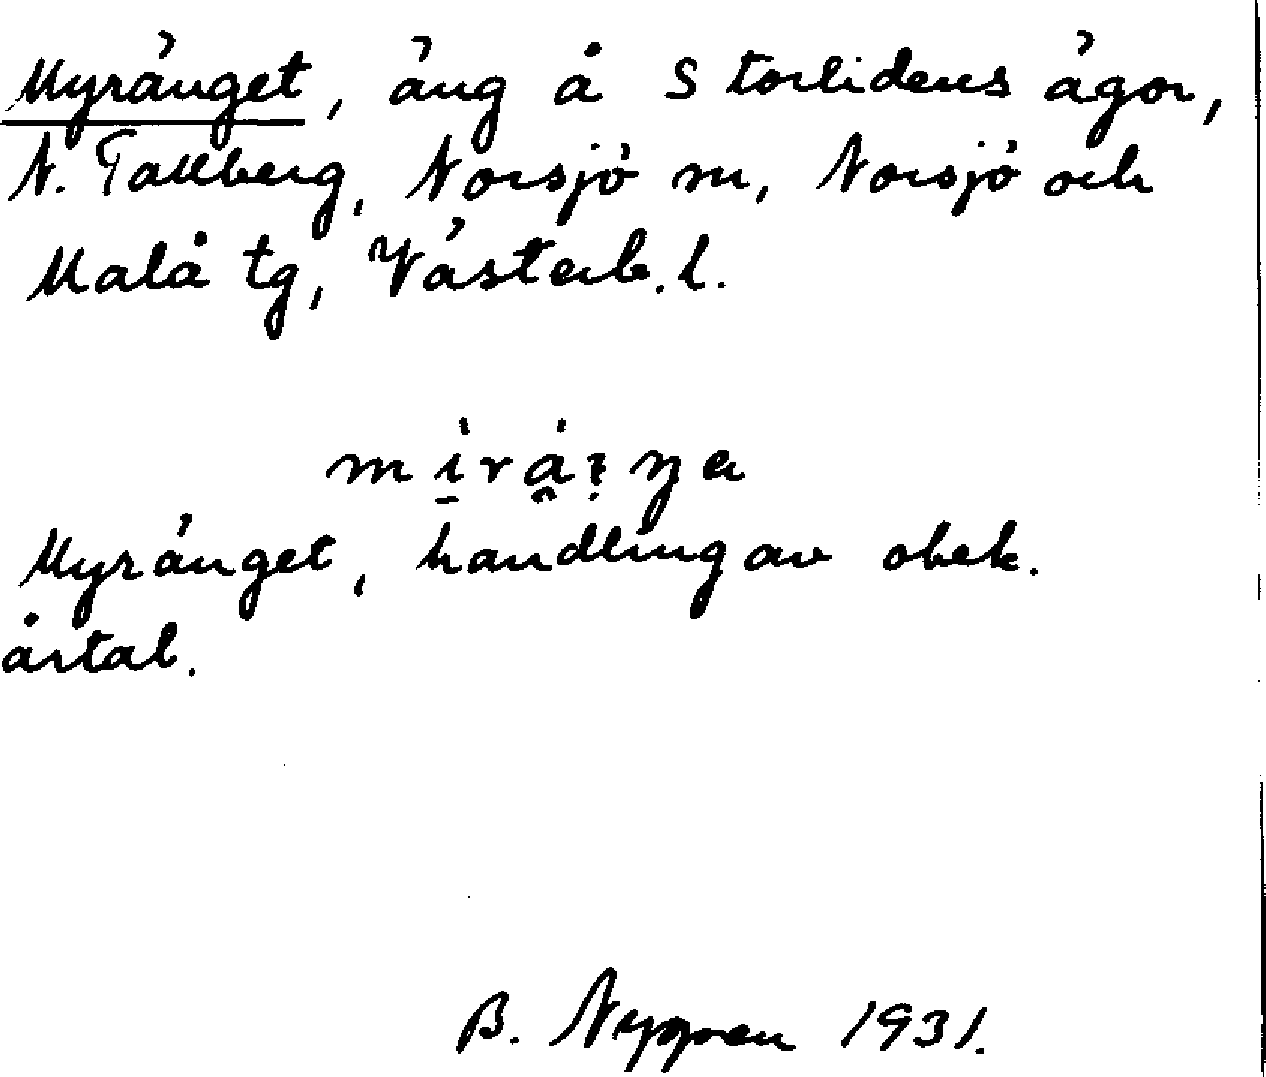 Myränget, äng å Storlidens ägor,
N. Tallberg, Norsjö sn, Norsjö och
Malå tg, Västerb. l.
Myränget, handling av obek.
årtal.
B. Nygren 1931.